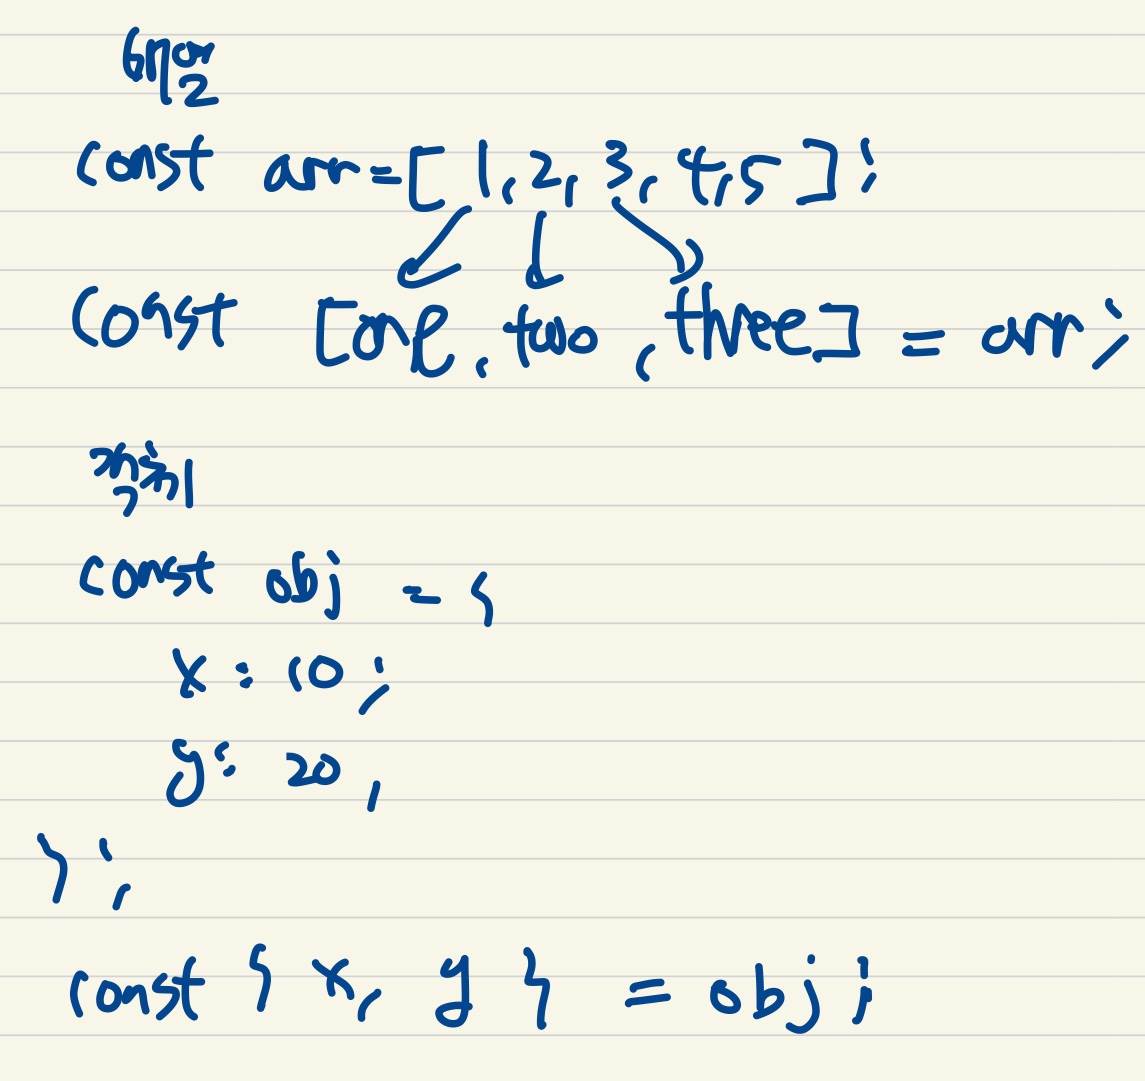 배열
const arr=[1,2,3,4,5];
const [one,two,three] = arr;
객체
const obj = {
x : 10;
y: 20,
};
const { x, y } = obj;